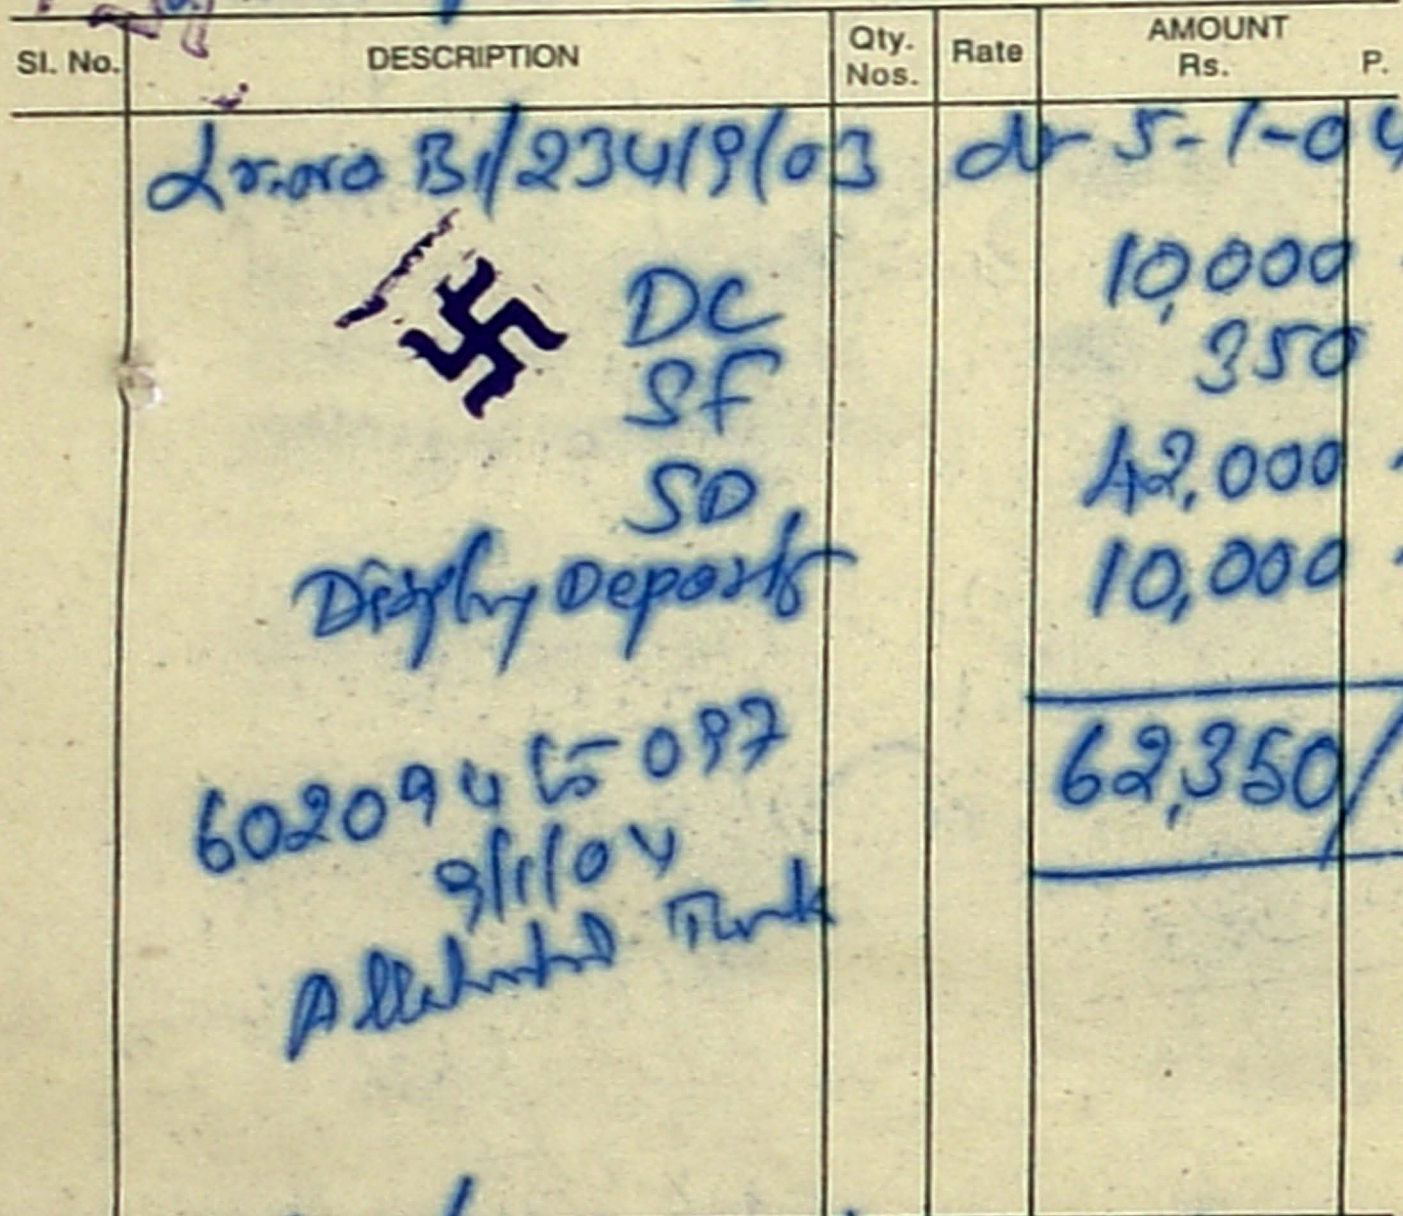 Sl. No. DESCRIPTION Qty. Nos. Rate AMOUNT Rs. P.
Lr.no B1/23419/03 dt 5-1-04
DC 10,000
SF 350
SD 42,000
Display Deposit 10,000
62,350/
602094 097
9/1/04
Allahabad Bank